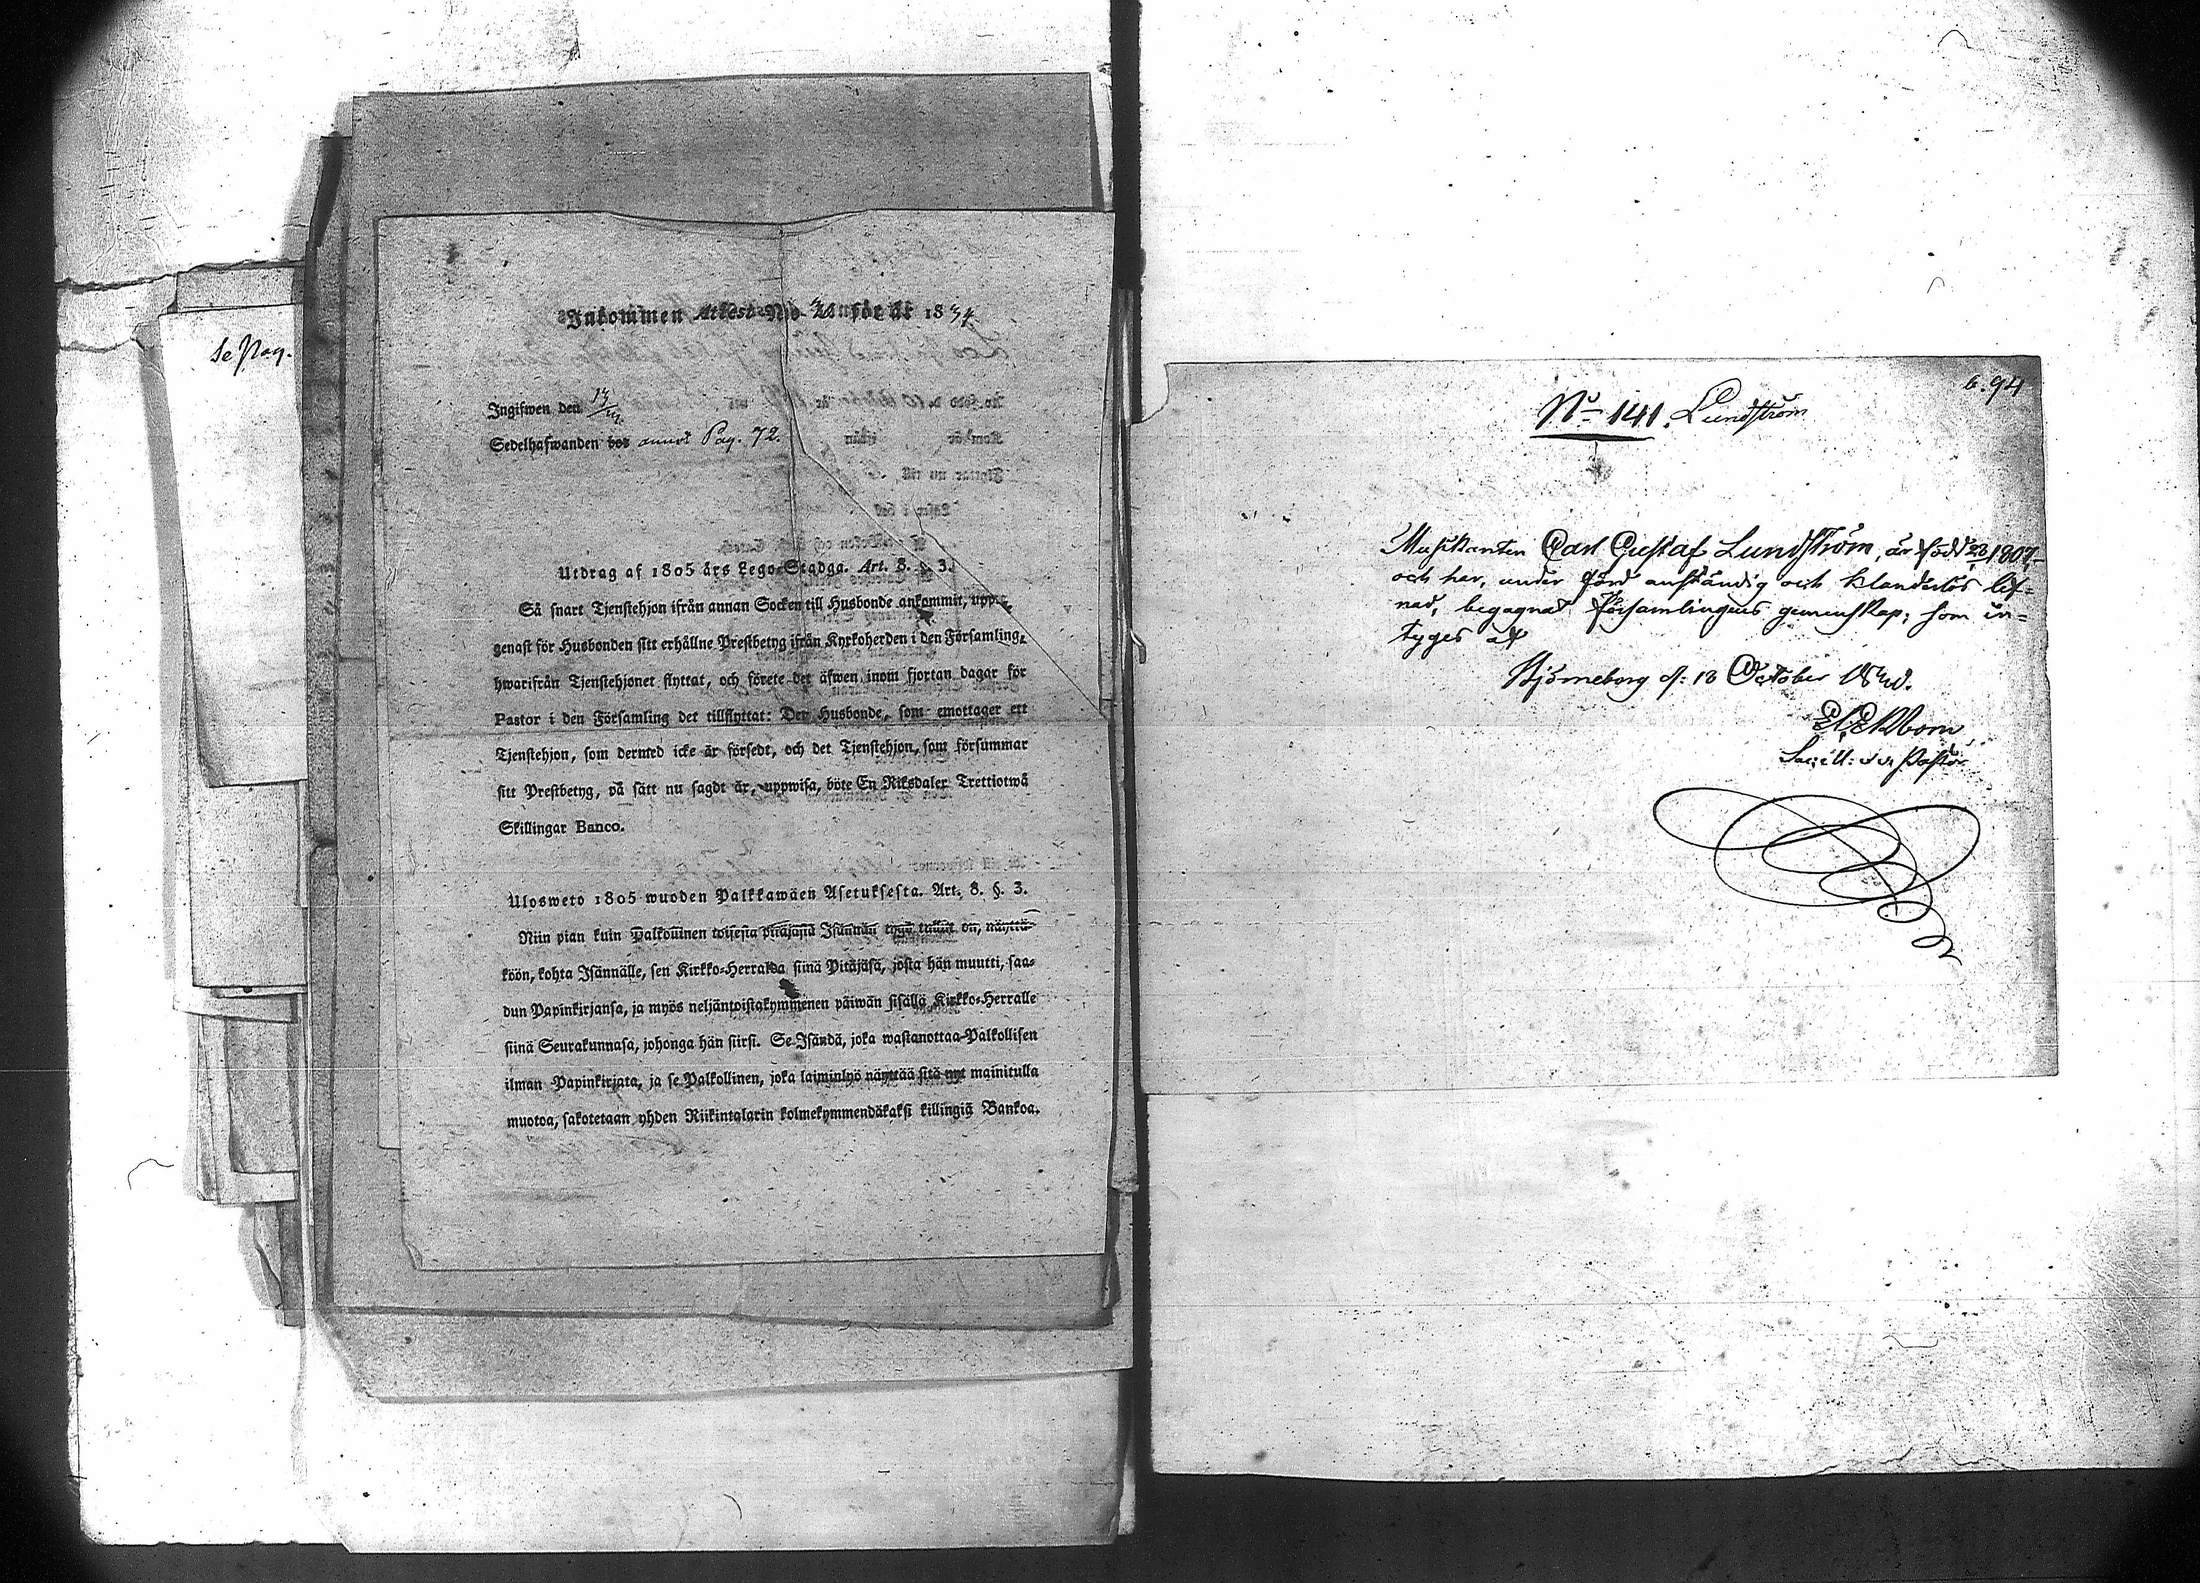 Se Pag.
Inkommen Attest No. för år 1834
Ingifwen den
Sedelhafwanden hos annot Pag. 72.
Utdrag af 1805 års Lego-Stadga. Art. 8. §. 3.
Så snart Tjenstehjon ifrån annan Socken till Husbonde ankommit, uppte,
genast för Husbonden sitt erhållne Prestbetyg ifrån Kyrkoherden i den Församling,
hwarifrån Tjenstehjonet flyttat, och förete det äfwen inom fjortan dagar för
Pastor i den Församling det tillflyttat: Den Husbonde, som emottager ett
Tjenstehjon, som dermed icke är försedt, och det Tjenstehjon, som försummar
sitt Prestbetyg, på sätt nu sagdt är, uppwisa, böte En Riksdaler Trettiotwå
Skillingar Banco.
Ulosweto 1805 wuoden Palkkawäen Asetuksesta. Art. 8. §. 3.
Niin pian kuin Palkollinen toisesta pitäjästä Isännän tygö tullut on, näyttä-
köön, kohta Isännälle, sen Kirkko-Herralda siinä Pitäjäsä, josta hän muutti, saa-
dun Papinkirjansa, ja myös neljäntoistakymmenen päiwän sisällä Kirkko-Herralle
siinä Seurakunnasa, johonga hän siirsi. Se Isändä, joka wastanottaa Palkollisen
ilman Papinkirjata, ja se Palkollinen, joka laiminlyö näyttää sitä nyt mainitulla
muotoa, sakotetaan yhden Riikintalarin kolmekymmendäkaksi killingiä Bankoa.
6.94
No 141. Lundström
Musikanten Carl Gustaf Lundström, är född 1807,
och har, under förd anständig och klanderlös lef-
nad, begagnat församlingens gemenskap; som in-
tyges af
Björneborg d: 13 October
Ekbom
Sacell: Pastor